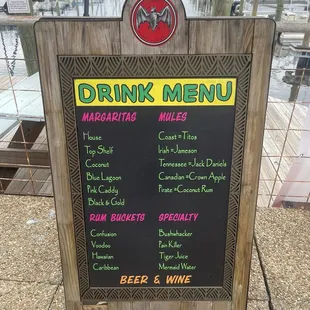 DRINK MENU
MARGARITAS
House
Top Shelf
Coconut
Blue Lagoon
Pink Caddy
Black & Gold
MULES
Coast = Titos
Irish = Jameson
Tennessee = Jack Daniels
Canadian = Crown Apple
Pirate = Coconut Rum
RUM BUCKETS
Confusion
Voodoo
Hawaiian
Caribbean
SPECIALTY
Bushwhacker
Pain Killer
Tiger Juice
Mermaid Water
BEER & WINE